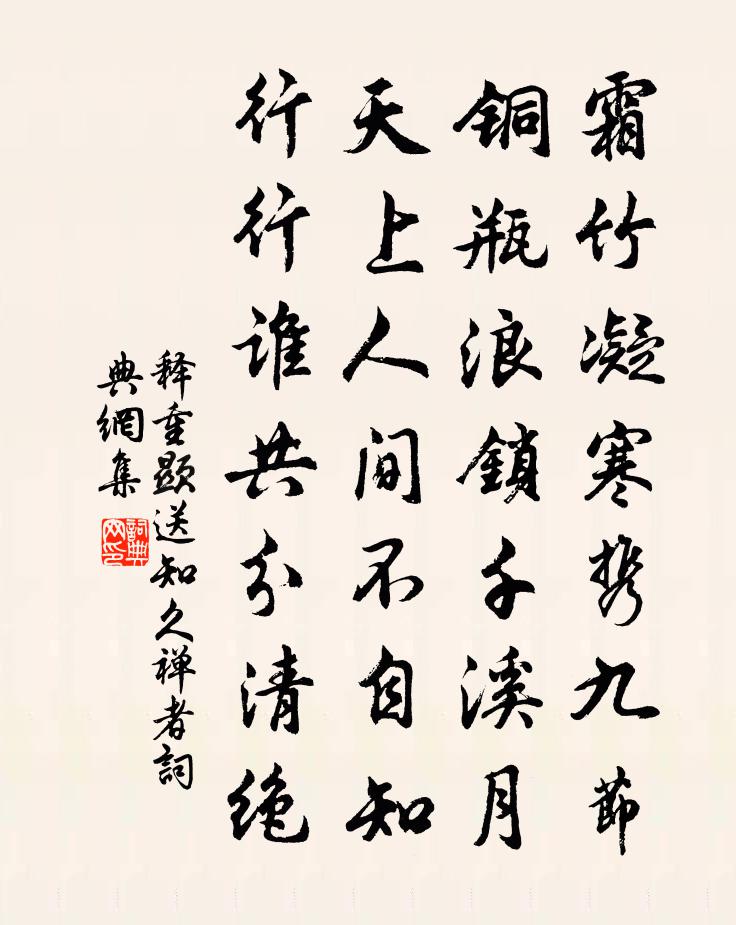 霜竹凝寒携九節
铜瓶浪鎖千溪月
天上人间不自知
行行谁共分清绝
释重顯送知久禅者詞
典網集
詞典网印